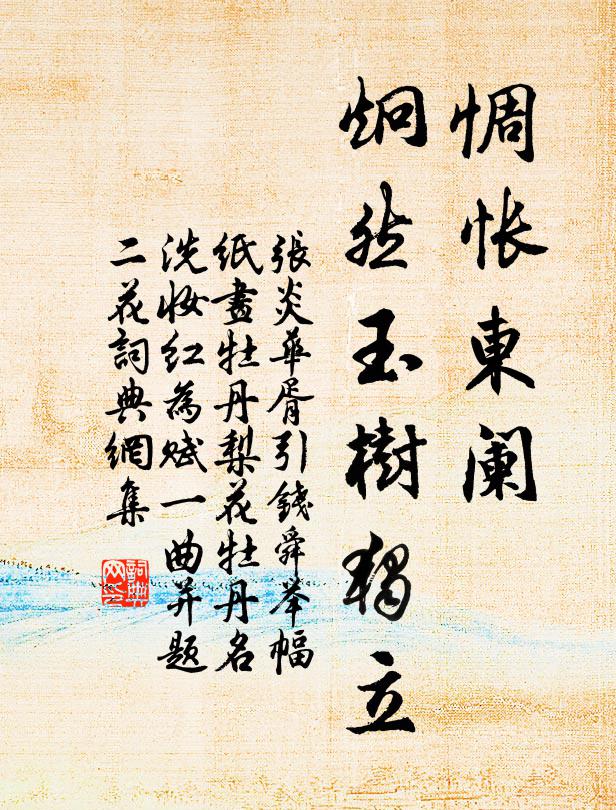 惆怅東阑
炯然玉樹獨立
張炎華胥引錢舜举幅
紙畫牡丹梨花牡丹名
洗妝红為賦一曲并题
二花詞典網集
詞典網